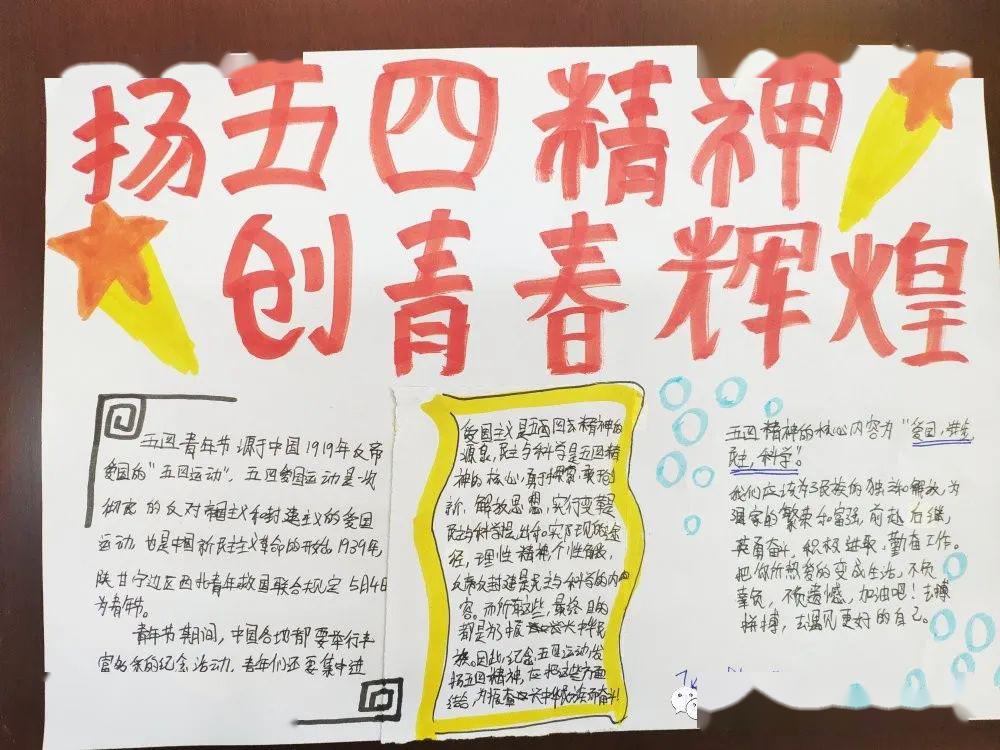 扬五四精神
创青春辉煌
五四青年节源于中国1919年反帝
爱国的"五四运动"，五四爱国运动是一次
彻底的反对帝国主义和封建主义的爱国
运动，也是中国新民主主义革命的开始。1939年，
陕甘宁边区西北青年救国联合规定5月4日
为青年节。
青年节期间，中国各地都要举行丰
富多彩的纪念活动，青年们还要集中进
爱国主义是五四精神的
源泉，民主与科学是五四精
神的核心，勇于探索、敢于创
新、解放思想、实行变革是
民主与科学提出和实现的途
径，理性精神、个性解放、
反帝反封建是民主与科学的内
容。而所有这些，最终目的
都是为了振兴中华民
族。因此，纪念五四运动，发
扬五四精神，应把这些方面
结合，为振兴中华民族而奋斗！
五四精神的核心内容为"爱国，进步，
民主，科学"。
我们应该为了民族的独立和解放，为
国家的繁荣和富强，前赴后继，
英勇奋斗，积极进取，勤奋工作。
把你所热爱的变成生活，不负
辜负，不负遗憾，加油吧！去搏
拼搏，去遇见更好的自己。